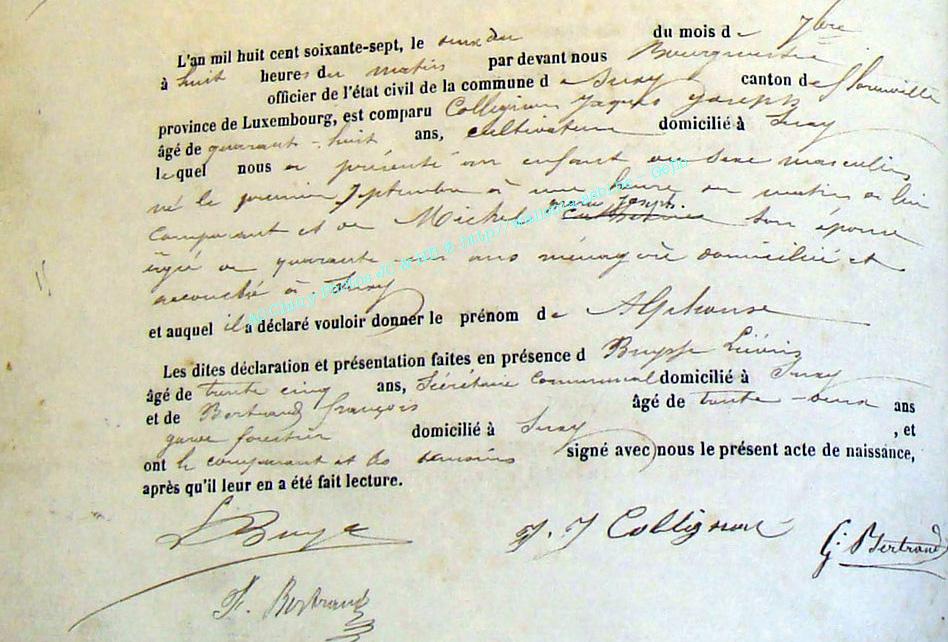 L'an mil huit cent soixante-sept, le deux du mois de 7bre
à huit heures du matin par devant nous Bourgmestre
officier de l'état civil de la commune de Suxy canton de Florenville
province de Luxembourg, est comparu Collignon Jaques Joseph
âgé de quarante-huit ans, cultivateur domicilié à Suxy
lequel nous a présenté un enfant du sexe masculin
né le premier Septembre à une heure du matin de lui
comparant et de Michel Marie Joseph son épouse
âgée de quarante ans ménagère domiciliée et
accouchée à Suxy
et auquel il a déclaré vouloir donner le prénom de Alphonse
Les dites déclaration et présentation faites en présence d Buysse Liévin
âgé de trente cinq ans, Sécrétaire Communal domicilié à Suxy
et de Bertrand françois âgé de trente-deux ans
garde forestier domicilié à Suxy , et
ont le comparant et les témoins signé avec nous le présent acte de naissance,
après qu'il leur en a été fait lecture.
L Buysse J. J Collignon G. Bertrand
Fr. Bertrand